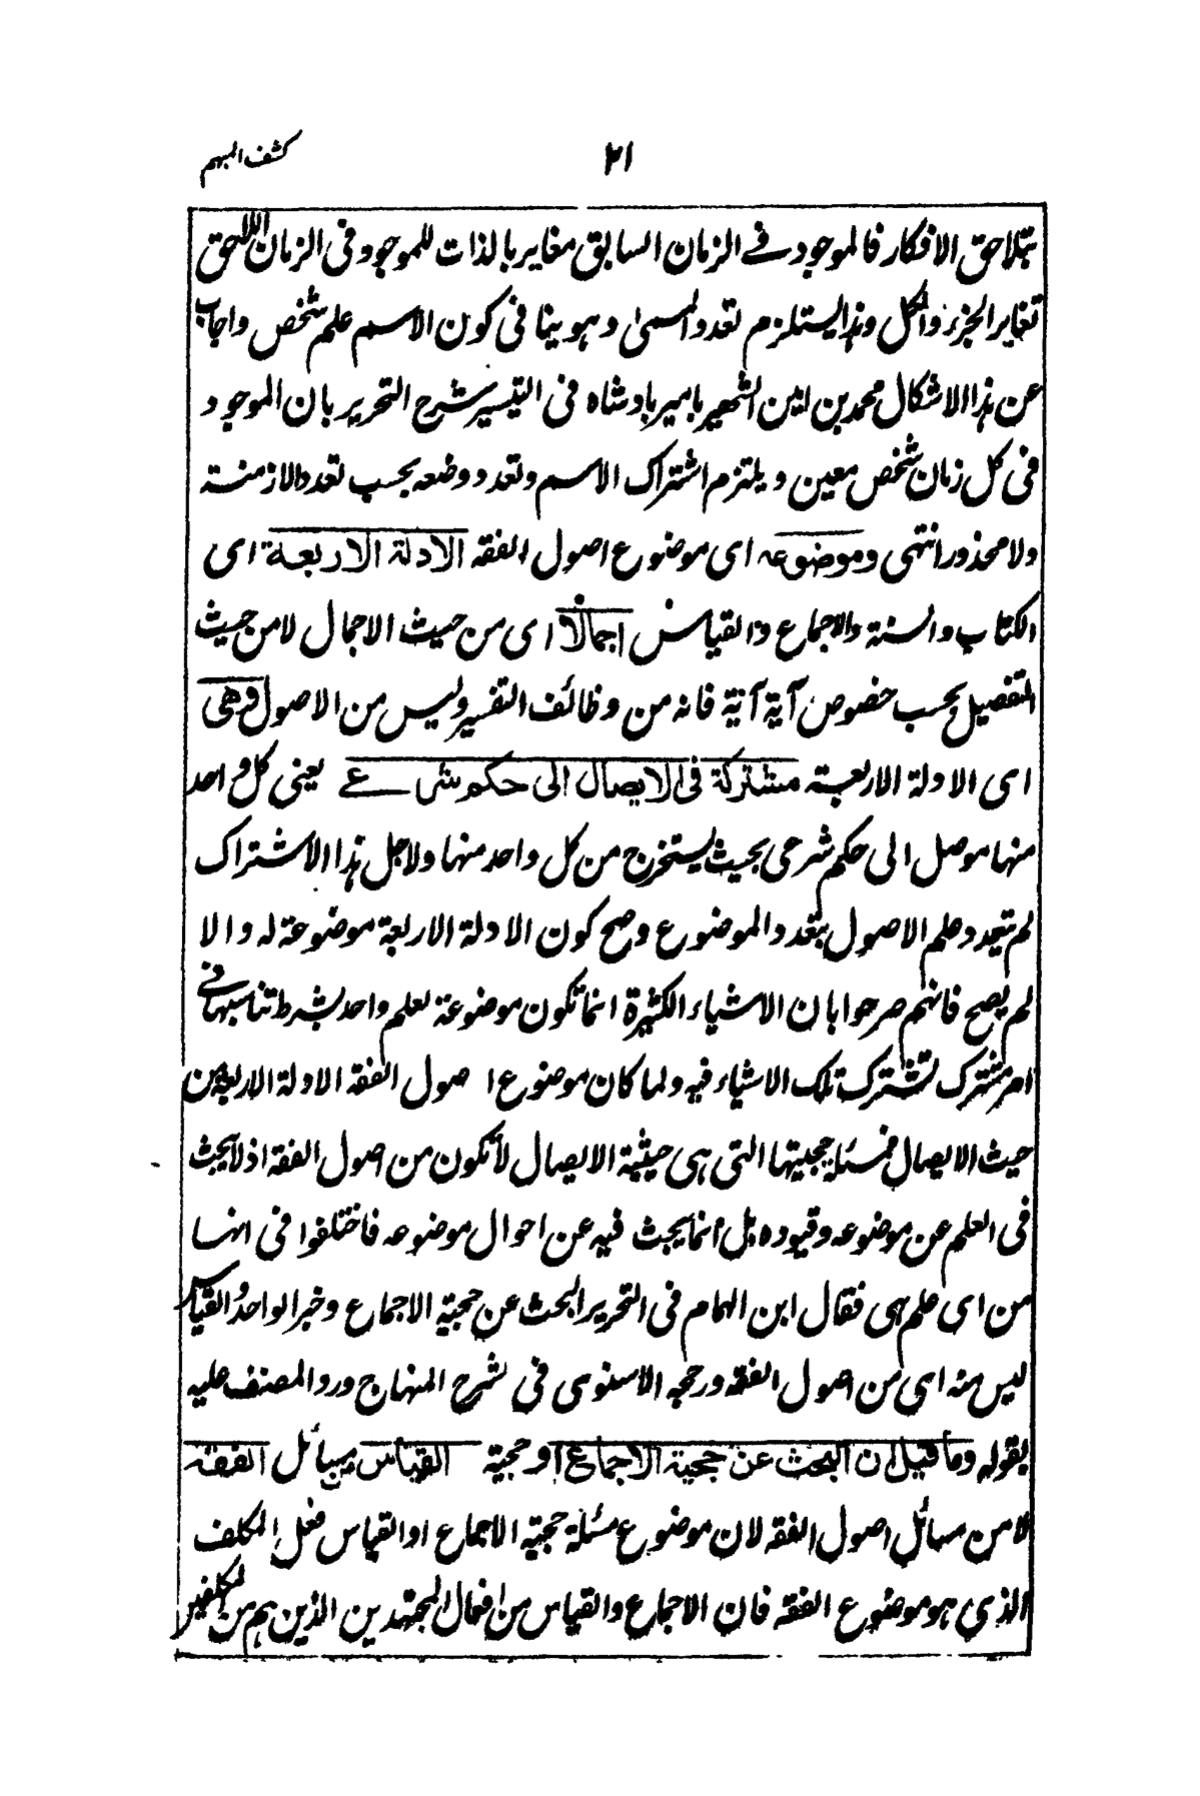 كشف المبهم
٢١
بتلاحق الافكار فالموجود فے الزمان السابق مغاير بالذات للموجود فى الزمان اللاحق
تغاير الجزء والكل وہذا يستلزم تعدد المسمىٰ وہو ينافى كون الاسم علم شخص واجاب
عن ہذا الاشكال محمد بن امين الشهير بامير بادشاه فى التيسير شرح التحرير بان الموجود
فى كل زمان شخص معين ويلتزم اشتراك الاسم وتعدد وضعه بحسب تعدد الازمنة
ولا محذور انتهى وموضوعه اى موضوع اصول الفقه الادلة الاربعة اى
الكتاب والسنة والاجماع والقياس اجمالا اى من حيث الاجمال لا من حيث
التفصيل بحسب خصوص آية آية فانه من وظائف التفسير وليس من الاصول وهى
اى الادلة الاربعة مشتركة فى الايصال الى حكم شرعے يعنى كل واحد
منها موصل الى حكم شرعى بحيث يستخرج من كل واحد منها ولاجل ہذا الاشتراك
لم يتعدد علم الاصول بتعدد الموضوع وصح كون الادلة الاربعة موضوعة له والا
لم يصح فانهم صرحوا بان الاشياء الكثيرة انما تكون موضوعة لعلم واحد بشرط تناسبها فے
امر مشترك تشترك تلك الاشياء فيه ولما كان موضوع اصول الفقه الادلة الاربعة من
حيث الايصال فمسئلة حجيتها التى ہى حيثية الايصال لا تكون من اصول الفقه اذ لا يبحث
فى العلم عن موضوعه وقيوده بل انما يبحث فيه عن احوال موضوعه فاختلفوا فى انها
من اى علم ہى فقال ابن الہمام فى التحرير البحث عن حجية الاجماع وخبر الواحد والقياس
ليس منه اى من اصول الفقه ورجحه الاسنوى فى شرح المنهاج ورد المصنف عليه
بقوله وما قيل ان البحث عن حجية الاجماع او حجية القياس من مسائل الفقه
لا من مسائل اصول الفقه لان موضوع مسئلة حجية الاجماع او القياس فعل المكلف
الذى ہو موضوع الفقه فان الاجماع والقياس من افعال المجتهدين الذين ہم من المكلفين